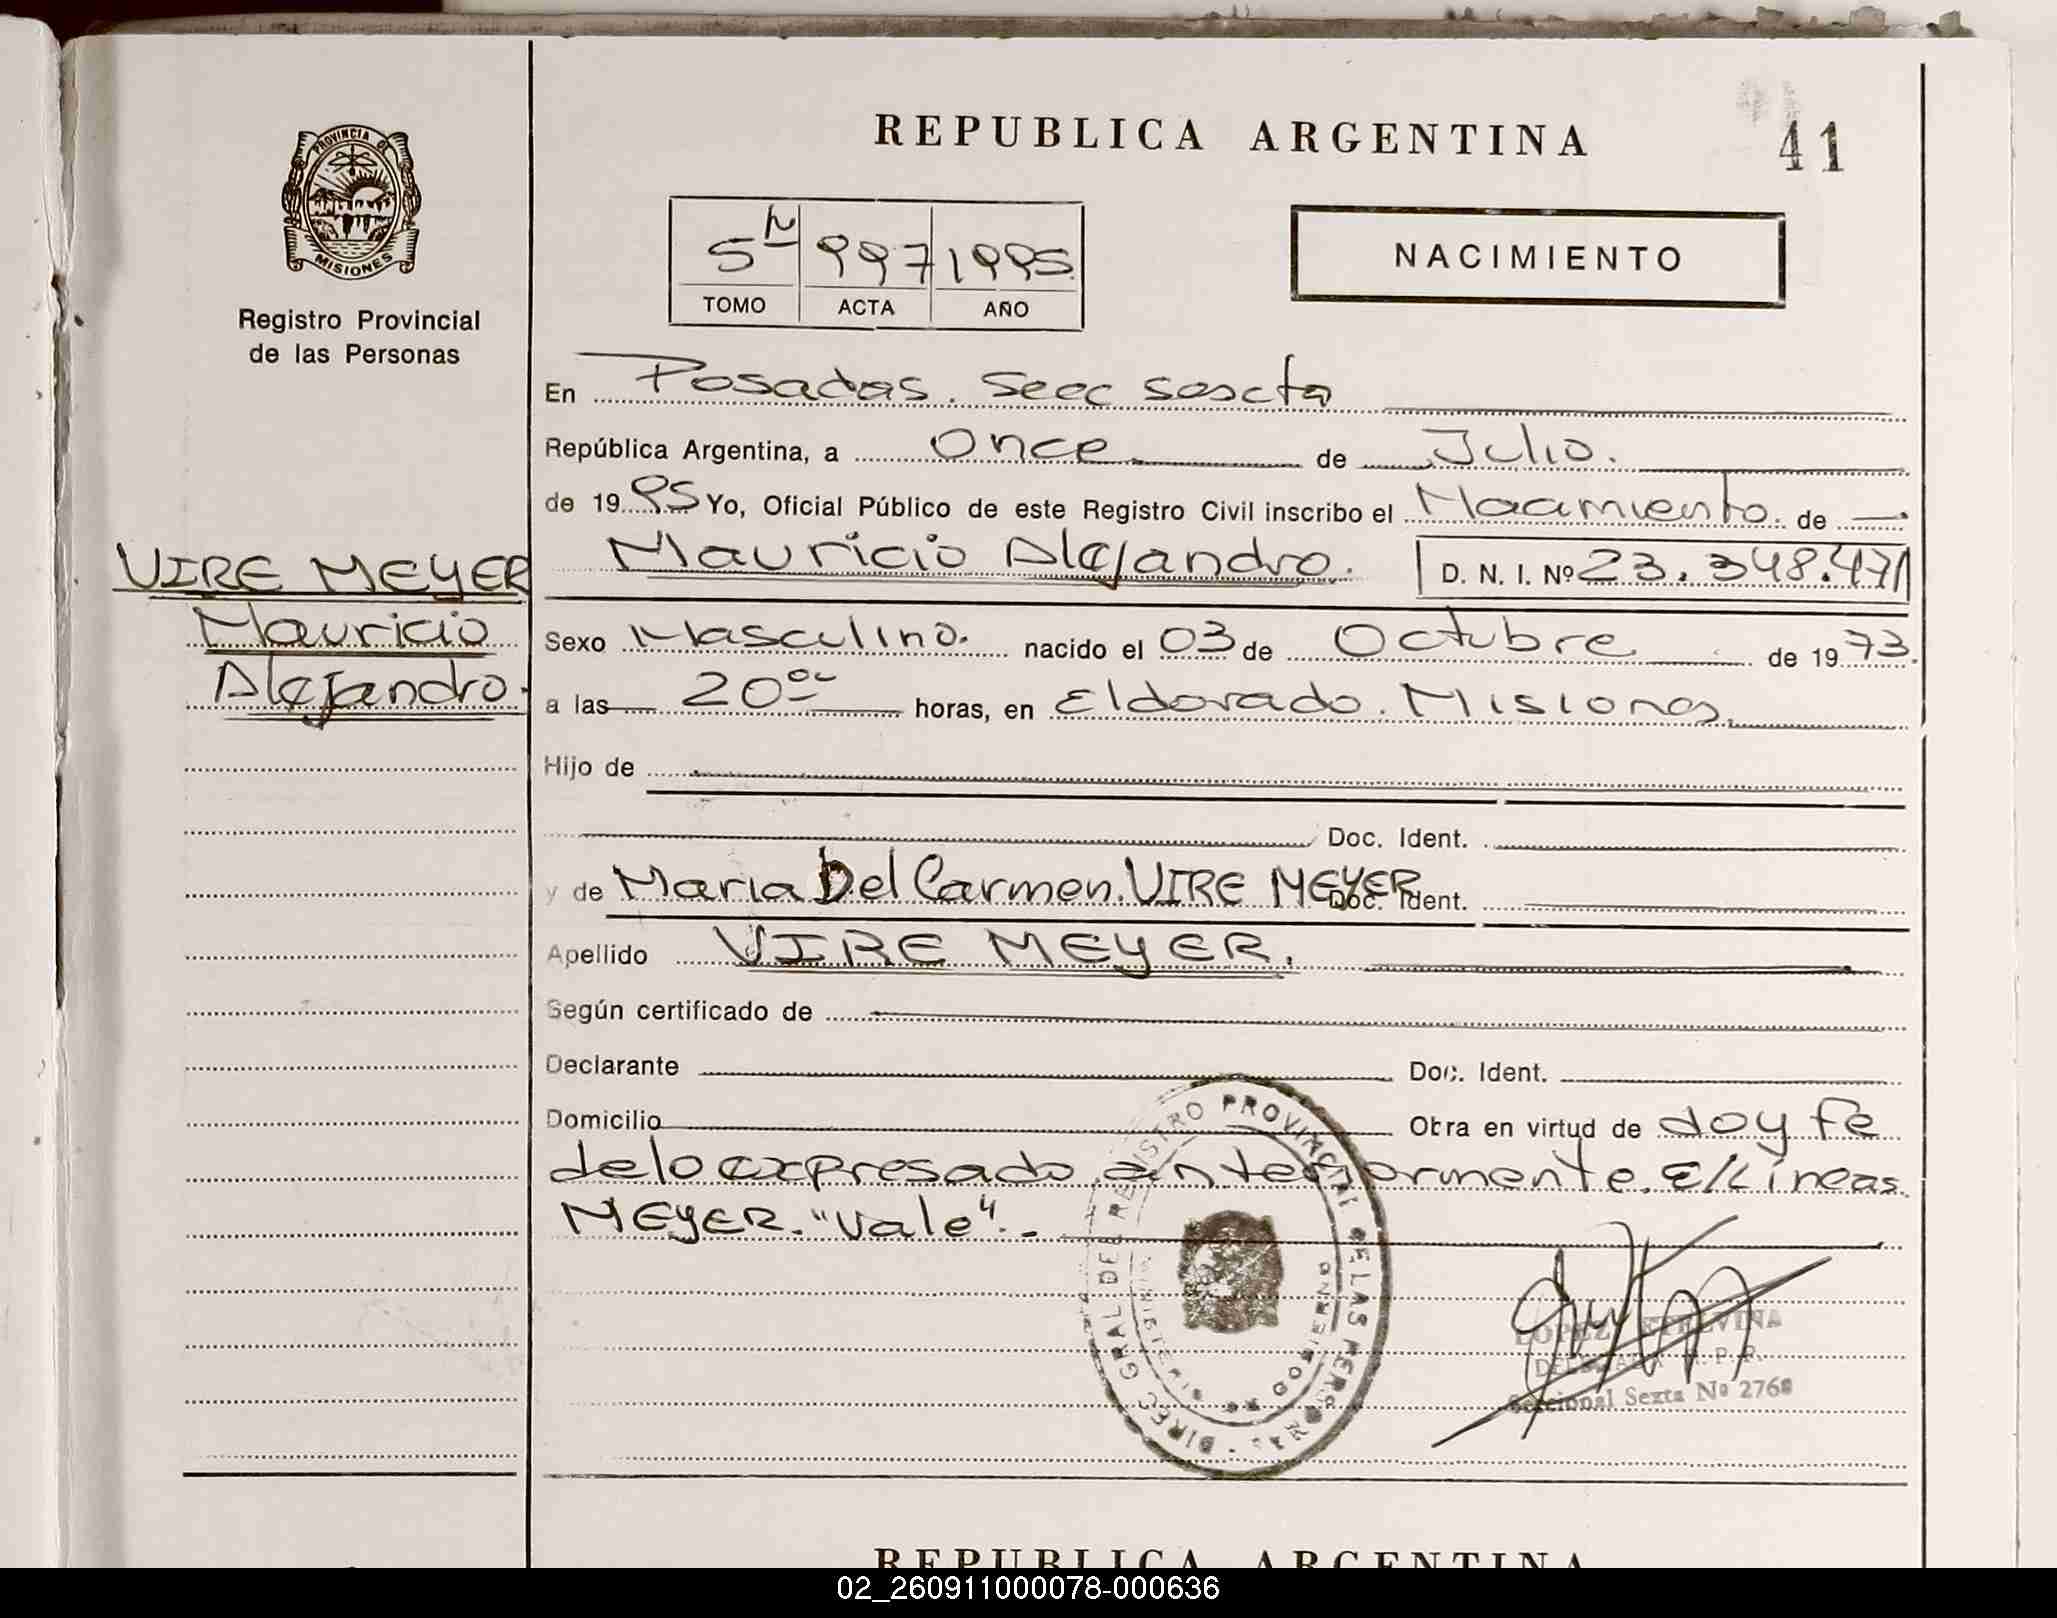 REPUBLICA ARGENTINA
41
PROVINCIA DE
MISIONES
Registro Provincial
de las Personas
5 997 1995
TOMO ACTA AÑO
NACIMIENTO
En Posadas. Secc sexta
República Argentina, a Once de Julio.
de 1995 Yo, Oficial Público de este Registro Civil inscribo el Nacimiento. de
VIRE MEYER
Mauricio
Alejandro.
Mauricio Alejandro. D. N. I. Nº 23.348.471
Sexo Masculino. nacido el 03 de Octubre de 1973.
a las 20 horas, en Eldorado. Misiones.
Hijo de
Doc. Ident.
y de Maria Del Carmen. VIRE MEYER Doc. Ident.
Apellido VIRE MEYER.
Según certificado de
Declarante Doc. Ident.
Domicilio Obra en virtud de doy fe
delo expresado anteriormente. E/Líneas
MEYER. "Vale".-
DIREC GRAL DEL REGISTRO PROVINCIAL DE LAS PERSONAS
GOBIERNO
LOPEZ ETELVINA
DELEGADA R. P. P.
Seccional Sexta Nº 2768
REPUBLICA ARGENTINA
02_260911000078-000636